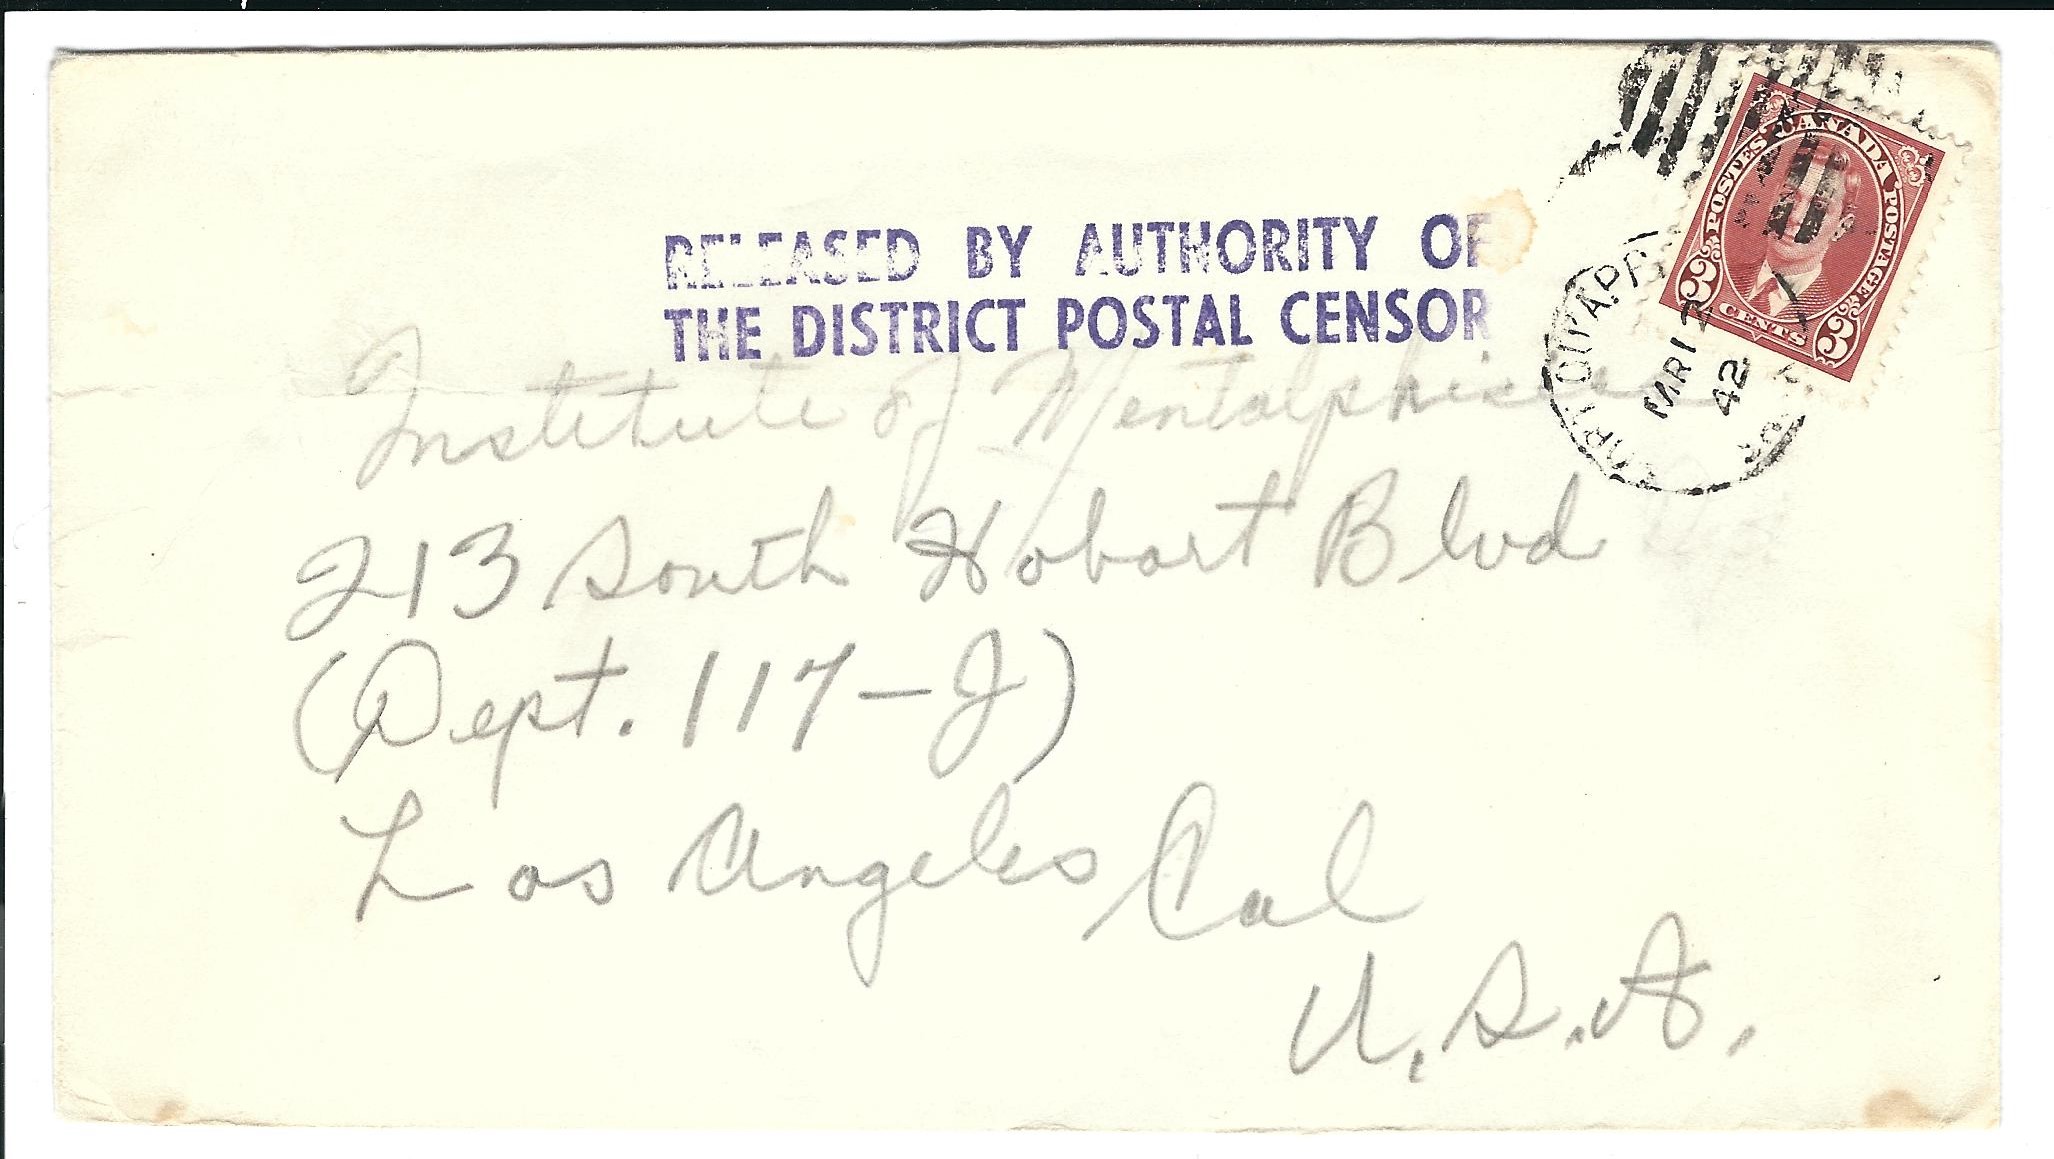 RELEASED BY AUTHORITY OF
THE DISTRICT POSTAL CENSOR
POSTES CANADA POSTAGE
3 CENTS 3
FORT QU'APPE
MR 12
42
Institute of Mentalphisics
213 South Hobart Blvd
(Dept. 117-J)
Los Angeles Cal
U.S.A.